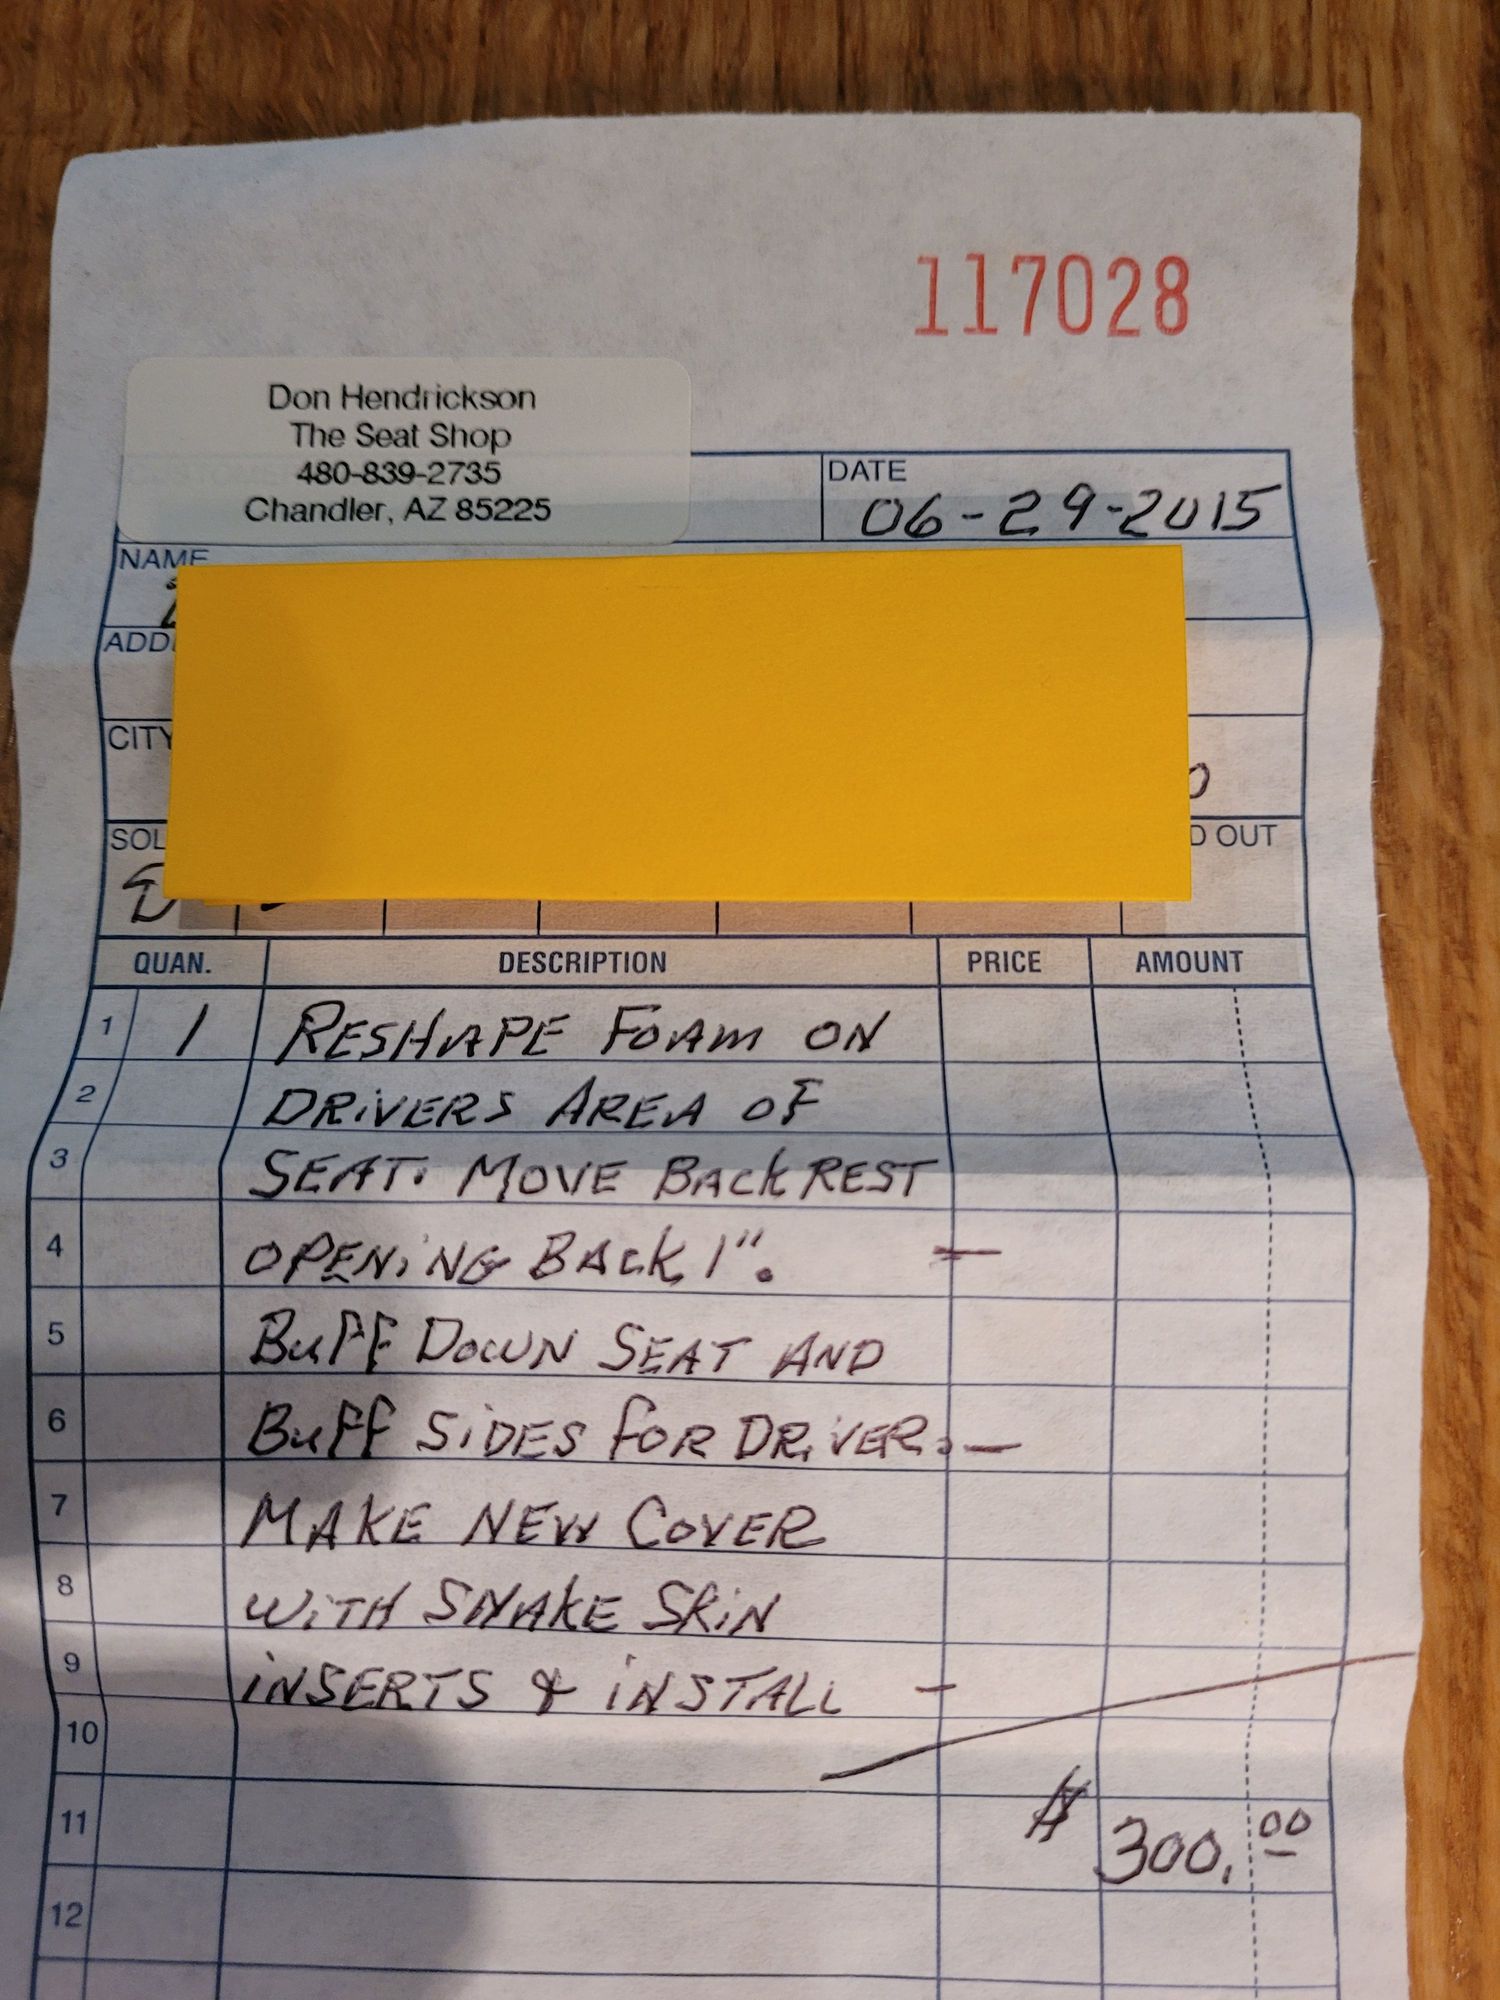 117028
Don Hendrickson
The Seat Shop
480-839-2735
Chandler, AZ 85225
DATE
06-29-2015
NAME
ADD
CITY
SOL
D OUT
QUAN. DESCRIPTION PRICE AMOUNT
1 1 RESHAPE FOAM ON
2 DRIVERS AREA OF
3 SEAT. MOVE BACKREST
4 OPENING BACK 1". —
5 BUFF DOWN SEAT AND
6 BUFF SIDES FOR DRIVER. —
7 MAKE NEW COVER
8 WITH SNAKE SKIN
9 INSERTS & INSTALL —
10
11 $ 300.00
12